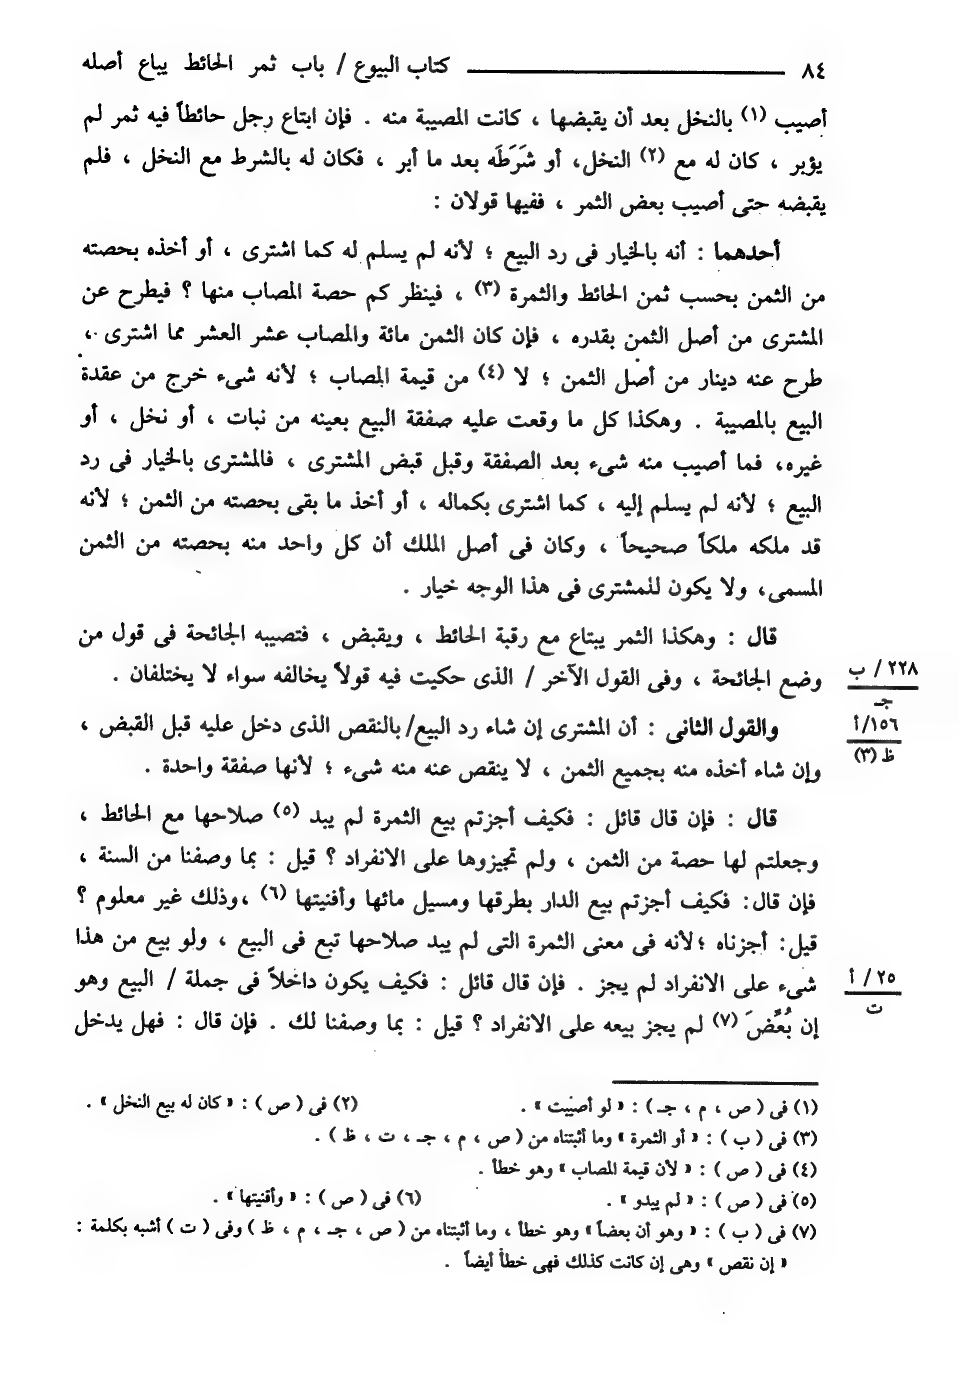 ٨٤ كتاب البيوع / باب ثمر الحائط يباع أصله
أصيب (١) بالنخل بعد أن يقبضها ، كانت المصيبة منه . فإن ابتاع رجل حائطاً فيه ثمر لم
يؤبر ، كان له مع (٢) النخل، أو شَرَطَه بعد ما أبر ، فكان له بالشرط مع النخل ، فلم
يقبضه حتى أصيب بعض الثمر ، ففيها قولان :
أحدهما : أنه بالخيار فى رد البيع ؛ لأنه لم يسلم له كما اشترى ، أو أخذه بحصته
من الثمن بحسب ثمن الحائط والثمرة (٣) ، فينظر كم حصة المصاب منها ؟ فيطرح عن
المشترى من أصل الثمن بقدره ، فإن كان الثمن مائة والمصاب عشر العشر مما اشترى ،
طرح عنه دينار من أصل الثمن ؛ لا (٤) من قيمة المصاب ؛ لأنه شىء خرج من عقدة
البيع بالمصيبة . وهكذا كل ما وقعت عليه صفقة البيع بعينه من نبات ، أو نخل ، أو
غيره، فما أصيب منه شىء بعد الصفقة وقبل قبض المشترى ، فالمشترى بالخيار فى رد
البيع ؛ لأنه لم يسلم إليه ، كما اشترى بكماله ، أو أخذ ما بقى بحصته من الثمن ؛ لأنه
قد ملكه ملكاً صحيحاً ، وكان فى أصل الملك أن كل واحد منه بحصته من الثمن
المسمى، ولا يكون للمشترى فى هذا الوجه خيار .
قال : وهكذا الثمر يبتاع مع رقبة الحائط ، ويقبض ، فتصيبه الجائحة فى قول من
وضع الجائحة ، وفى القول الآخر / الذى حكيت فيه قولاً يخالفه سواء لا يختلفان .
٢٢٨ / ب
جـ
والقول الثانى : أن المشترى إن شاء رد البيع/ بالنقص الذى دخل عليه قبل القبض ،
١٥٦/ أ
ظ (٣)
وإن شاء أخذه منه بجميع الثمن ، لا ينقص عنه منه شىء ؛ لأنها صفقة واحدة .
قال : فإن قال قائل : فكيف أجزتم بيع الثمرة لم يبد (٥) صلاحها مع الحائط ،
وجعلتم لها حصة من الثمن ، ولم تجيزوها على الانفراد ؟ قيل : بما وصفنا من السنة ،
فإن قال: فكيف أجزتم بيع الدار بطرقها ومسيل مائها وأفنيتها (٦) ،وذلك غير معلوم ؟
قيل: أجزناه ؛لأنه فى معنى الثمرة التى لم يبد صلاحها تبع فى البيع ، ولو بيع من هذا
شىء على الانفراد لم يجز . فإن قال قائل : فكيف يكون داخلاً فى جملة / البيع وهو
٢٥ / أ
ت
إن بُعِّضَ (٧) لم يجز بيعه على الانفراد ؟ قيل : بما وصفنا لك . فإن قال : فهل يدخل
(١) فى ( ص ، م ، جـ ) : « لو أصيبت » .
(٢) فى ( ص ) : « كان له بيع النخل » .
(٣) فى ( ب ) : « أو الثمرة » وما أثبتناه من ( ص ، م ، جـ ، ت ، ظ ) .
(٤) فى ( ص ) : « لأن قيمة المصاب » وهو خطأ .
(٥) فى ( ص ) : « لم يبدو » .
(٦) فى ( ص ) : « وأقنيتها » .
(٧) فى ( ب ) : « وهو أن بعضاً » وهو خطأ ، وما أثبتناه من ( ص ، جـ ، م ، ظ ) وفى ( ت ) أشبه بكلمة :
« إن نقص » وهى إن كانت كذلك فهى خطأ أيضاً .